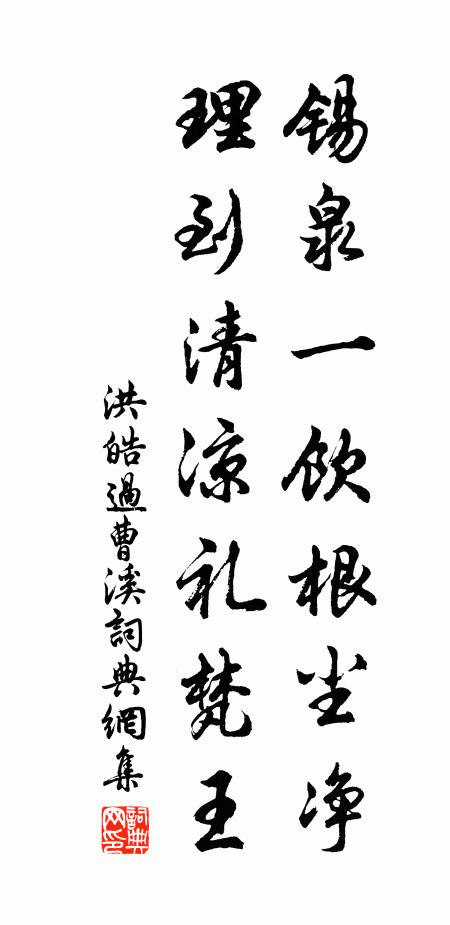 錫泉一飲根尘净
理到清涼礼梵王
洪皓過曹溪詞典網集
詞典网印